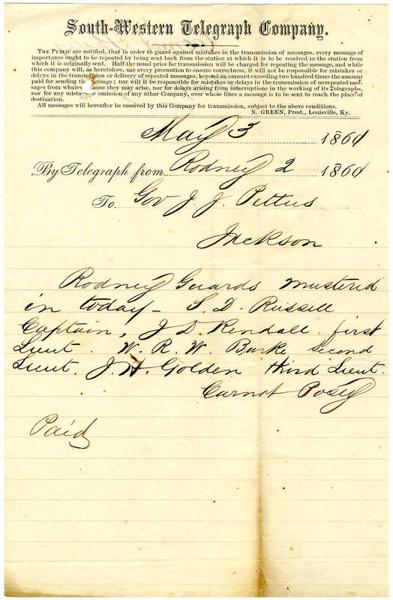 South-Western Telegraph Company.
THE PUBLIC are notified, that in order to guard against mistakes in the transmission of messages, every message of
importance ought to be repeated by being sent back from the station at which it is to be received to the station from
which it is originally sent. Half the usual price for transmission will be charged for repeating the message, and while
this company will, as heretofore, use every precaution to ensure correctness, it will not be responsible for mistakes or
delays in the transmission or delivery of repeated messages, beyond an amount exceeding two hundred times the amount
paid for sending the message; nor will it be responsible for mistakes or delays in the transmission of unrepeated mes-
sages from whatever cause they may arise, nor for delays arising from interruptions in the working of its Telegraphs,
nor for any mistake or omission of any other Company, over whose lines a message is to be sent to reach the place of
destination.
All messages will hereafter be received by this Company for transmission, subject to the above conditions.
N. GREEN, Prest., Louisville, Ky.
May 3 1861
By Telegraph from Rodney 2 1861
To Gov J. J. Pettus
Jackson
Rodney Guards mustered
in today - S. D. Russell
Captain, J D Kendall first
Lieut. W. R. W. Burke second
Lieut. J. H. Golden third Lieut.
Carnot Posey
Paid